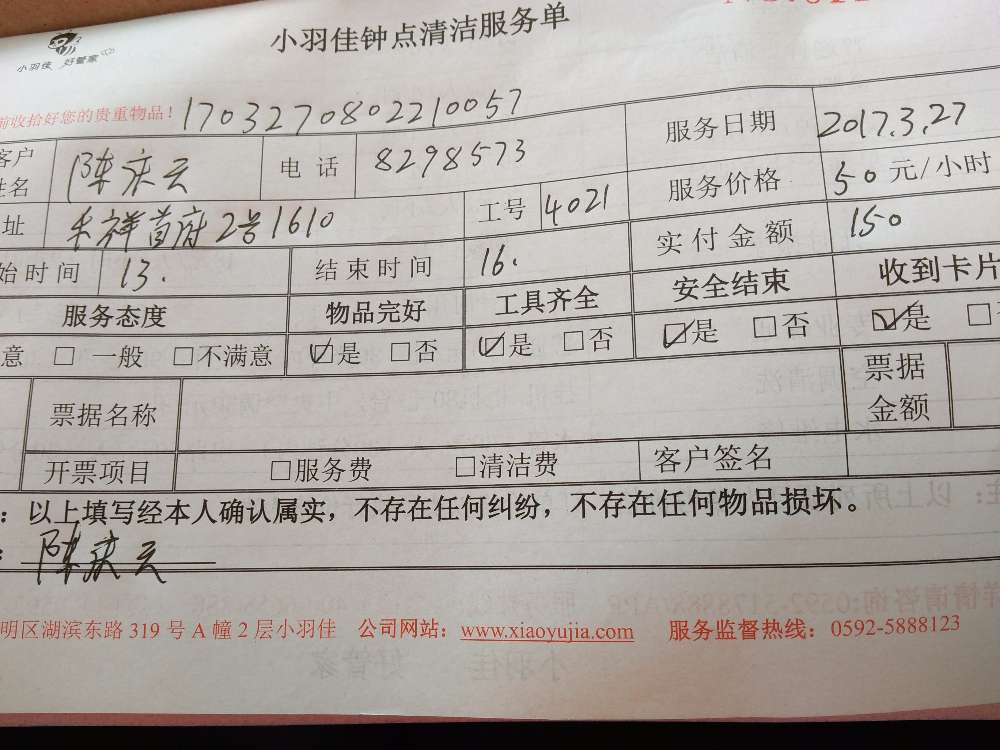 小羽佳钟点清洁服务单
小羽佳 好管家
前收拾好您的贵重物品! 1703270802210057
客户姓名 陈庆云 电话 8298573 服务日期 2017.3.27
址 禾祥首府2号1610 工号 4021 服务价格 50元/小时
始时间 13. 结束时间 16. 实付金额 150
服务态度 物品完好 工具齐全 安全结束 收到卡片
意 □ 一般 □不满意 ☑是 □否 ☑是 □否 ☑是 □否 ☑是 □
票据名称 票据金额
开票项目 □服务费 □清洁费 客户签名
：以上填写经本人确认属实，不存在任何纠纷，不存在任何物品损坏。
：陈庆云
明区湖滨东路 319 号 A 幢 2 层小羽佳 公司网站：www.xiaoyujia.com 服务监督热线：0592-5888123